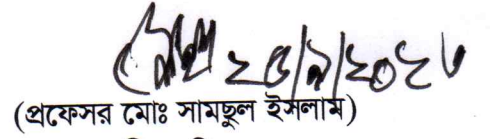 ২৫/৯/২০২৩
(প্রফেসর মোঃ সামছুল ইসলাম)